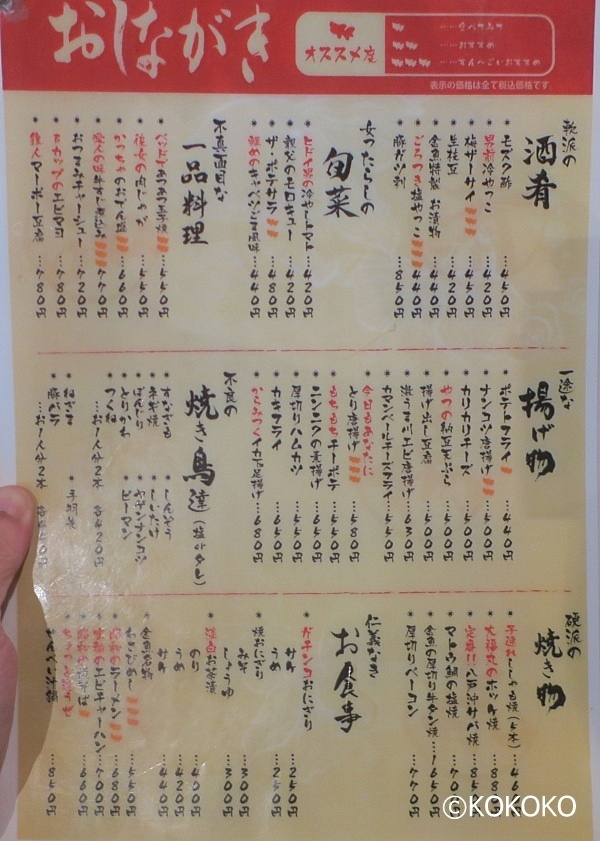 おしながき
オススメ度
……食べなきゃ
……おすすめ
……すんげ〜ごいおすすめ
表示の価格は全て税込価格です。
軟派の
酒肴
モズク酢 …450円
男前冷やっこ …420円
梅ザーサイ …450円
生枝豆 …420円
金魚特製 お漬物 …440円
ごろつき塩やっこ …440円
豚ガツ刺 …850円
女ったらしの
旬菜
ヒドイ男の冷やしトマト …420円
親父のモロキュー …420円
ザ・ポテサラ …480円
軽めのキャベツごま風味 …440円
不真面目な
一品料理
バッドであつあつ玉子焼 …550円
彼女の肉じゃが …550円
かっちゃのおでん盛 …660円
愛人の味牛すじ煮込み …770円
おつまみチャーシュー …720円
Bカップのエビマヨ …780円
鉄人マーボー豆腐 …780円
一途な
揚げ物
ポテトフライ …440円
ナンコツ唐揚げ …500円
カリカリチーズ …500円
やつの納豆天ぷら …500円
揚げ出し豆腐 …500円
洗うま川エビ唐揚げ …630円
カマンベールチーズフライ …550円
今日もあなたに
とり唐揚げ …580円
もちもちチーポテ …550円
ニンニクの素揚げ …650円
厚切りハムカツ …550円
カキフライ …650円
からみつくイカ下足揚げ …680円
不良の
焼き鳥達(塩orタレ)
すなぎも
ネギ焼
ぼんじり
とりかわ
つくね
しんぞう
しいたけ
ヤゲンナンコツ
ピーマン
…お1人分2本 各420円
ねぎま
豚バラ
手羽先
…お1人分2本 各450円
硬派の
焼き物
子連れししゃも焼(5本)
大福丸のホッケ焼
定番!!八戸沖サバ焼
マトウ鯛の塩焼
金魚の厚切り牛タン焼 …1650円
厚切りベーコン …770円
仁義なき
お食事
ガチンコおにぎり
サケ …250円
うめ …250円
焼おにぎり
みそ …300円
しょうゆ …300円
淡白お茶漬
のり …400円
うめ …420円
サケ …440円
金魚名物
わさびめし …550円
昭和のラーメン …680円
大福のエビチャーハン …700円
昭和の焼そば …660円
せんべい汁鍋 …850円
©KOKOKO